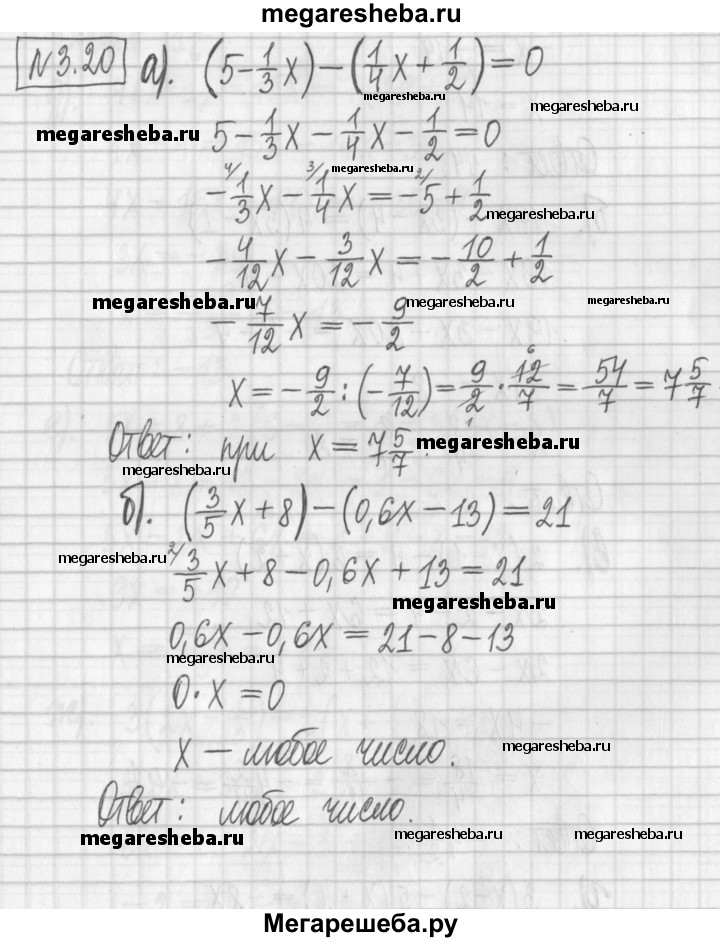 megaresheba.ru
N 3.20 а). (5 - 1/3 x) - (1/4 x + 1/2) = 0
megaresheba.ru megaresheba.ru
megaresheba.ru 5 - 1/3 x - 1/4 x - 1/2 = 0
megaresheba.ru
4/ 3/ 2/
- 1/3 x - 1/4 x = -5 + 1/2
megaresheba.ru
- 4/12 x - 3/12 x = - 10/2 + 1/2
megaresheba.ru megaresheba.ru megaresheba.ru
- 7/12 x = - 9/2
x = - 9/2 : (- 7/12) = 9/2 · 12/7 = 54/7 = 7 5/7
6
1
Ответ: при x = 7 5/7. megaresheba.ru
megaresheba.ru
б). (3/5 x + 8) - (0,6x - 13) = 21
megaresheba.ru 2/ 3/5 x + 8 - 0,6x + 13 = 21
megaresheba.ru
0,6x - 0,6x = 21 - 8 - 13
megaresheba.ru
0 · x = 0
x — любое число. megaresheba.ru
Ответ: любое число.
megaresheba.ru megaresheba.ru megaresheba.ru
Мегарешеба.ру